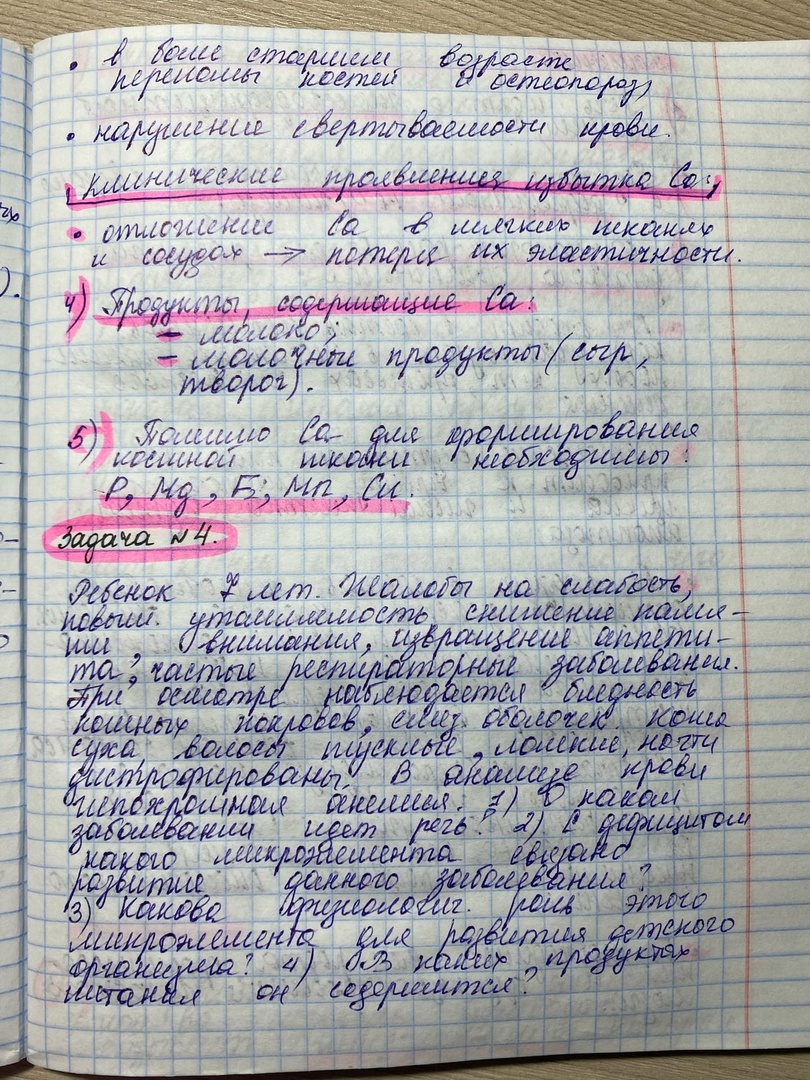 • в более старшем возрасте
переломы костей и остеопороз,
• нарушение свертываемости крови.
Клинические проявления избытка Ca:
• отложение Ca в мягких тканях
и сосудах → потеря их эластичности.
4) Продукты, содержащие Ca:
– молоко;
– молочные продукты (сыр,
творог).
5) Помимо Ca для формирования
костной ткани необходимы:
P, Mg, F; Mn, Cu.
Задача №4.
Ребенок 7 лет. Жалобы на слабость,
повыш. утомляемость, снижение памя-
ти, внимания, извращение аппети-
та, частые респираторные заболевания.
При осмотре наблюдается бледность
кожных покровов, слиз. оболочек. Кожа
суха, волосы тусклые, ломкие, ногти
дистрофированы. В анализе крови
гипохромная анемия. 1) О каком
заболевании идет речь? 2) С дефицитом
какого микроэлемента связано
развитие данного заболевания?
3) Какова физиологич. роль этого
микроэлемента для развития детского
организма? 4) В каких продуктах
питания он содержится?